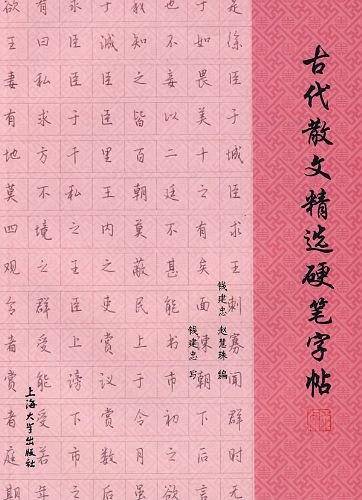 古代散文精选硬笔字帖
钱建忠 赵慧珠 编
钱建忠 写
上海大学出版社
王曰臣诚知不如徐
妻私臣臣之妾畏臣
有求于臣皆以美于
地方千里百二十城
莫不私王朝廷之臣
四境之内莫不有求
观之王之蔽甚矣王
令群臣吏民能面刺
者受上赏上书谏寡
赏能谤议于市朝闻
者受下赏令初下群
庭若市数月之后时
年之后虽欲言无